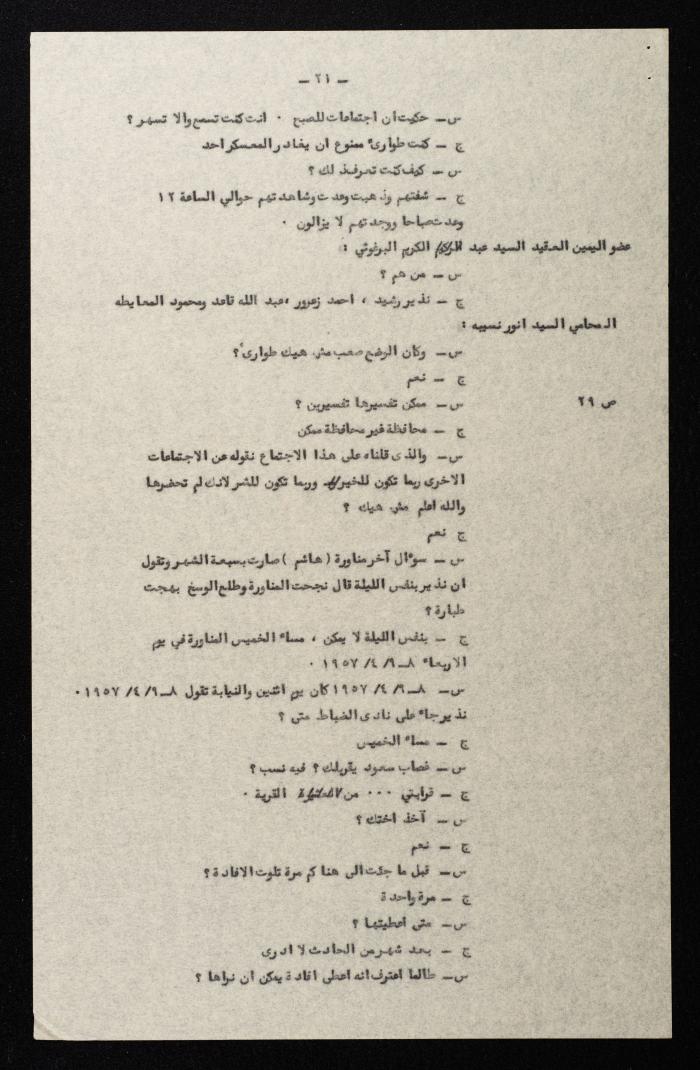 — ٢١ —
س — حكيت ان اجتماعات للصبح ٠ انت كنت تسمع والا تسهر ؟
ج — كنت طوارىء ممنوع ان يغادر المعسكر احد
س — كيف كنت تعرف ذلك ؟
ج — شفتهم وذهبت وعدت وشاهدتهم حوالي الساعة ١٢
وعدت صباحا ووجدتهم لا يزالون ٠
عضو اليمين العقيد السيد عبد الكريم البرغوثي :
س — من هم ؟
ج — نذير رشيد ، احمد زعرور ،عبد الله قاعد ومحمود المعايطه
المحامي السيد انور نسيبه :
س — وكان الوضع صعب مش هيك طوارىء؟
ج — نعم
ص ٢٩
س — ممكن تفسيرها تفسيرين ؟
ج — محافظة غير محافظة ممكن
س — والذى قلناه على هذا الاجتماع نقوله عن الاجتماعات
الاخرى ربما تكون للخير وربما تكون للشر لانك لم تحضرها
والله اعلم مش هيك ؟
ج نعم
س — سؤال آخر مناورة ( هاشم ) صارت بسبعة الشهر وتقول
ان نذير بنفس الليلة قال نجحت المناورة وطلع الوسخ بهجت
طبارة ؟
ج — بنفس الليلة لا يمكن ، مساء الخميس المناورة في يوم
الاربعاء ٨ــ٩/ ٤/ ١٩٥٧ ٠
س — ٨ــ٩/ ٤/ ١٩٥٧ كان يوم اثنين والنيابة تقول ٨ــ٩/ ٤/ ١٩٥٧ ٠
نذير جاء على نادى الضباط متى ؟
ج — مساء الخميس
س — غصاب سعود يقربلك ؟ فيه نسب ؟
ج — قرابتي ٠٠٠ من القرية ٠
س — آخذ اختك ؟
ج — نعم
س — قبل ما جئت الى هنا كم مرة تلوت الافادة ؟
ج — مرة واحدة
س — متى اعطيتها ؟
ج — بعد شهر من الحادث لا ادرى
س — طالما اعترف انه اعطى افادة يمكن ان نراها ؟